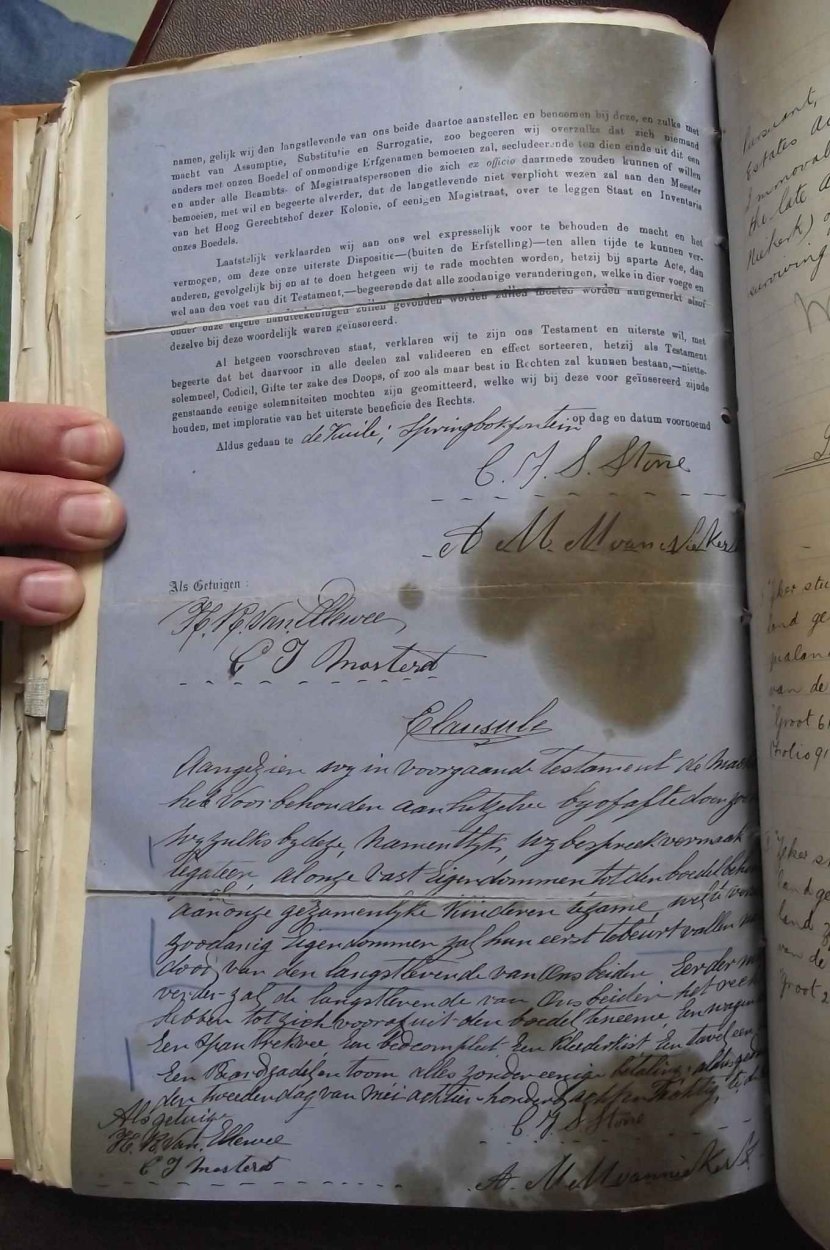 namen, gelijk wij den langstlevende van ons beide daartoe aanstellen en benoemen bij deze, en zulks met
macht van Assumptie, Substitutie en Surrogatie, zoo begeeren wij overzulks dat zich niemand
anders met onzen Boedel of onmondige Erfgenamen bemoeien zal, secludeerende ten dien einde uit dit een
en ander alle Beambts- of Magistraatspersonen die zich ex officio daarmede zouden kunnen of willen
bemoeien, met wil en begeerte alverder, dat de langstlevende niet verplicht wezen zal aan den Meester
van het Hoog Gerechtshof dezer Kolonie, of eenigen Magistraat, over te leggen Staat en Inventaris
onzes Boedels.
Laatstelijk verklaarden wij aan ons wel expresselijk voor te behouden de macht en het
vermogen, om deze onze uiterste Dispositie—(buiten de Erfstelling)—ten allen tijde te kunnen ver-
anderen, gevolgelijk bij en af te doen hetgeen wij te rade mochten worden, hetzij bij aparte Acte, dan
wel aan den voet van dit Testament,—begeerende dat alle zoodanige veranderingen, welke in dier voege en
onder onze eigene handteekeningen zullen gevonden worden zullen moeten worden aangemerkt alsof
dezelve bij deze woordelijk waren geïnsereerd.
Al hetgeen voorschreven staat, verklaren wij te zijn ons Testament en uiterste wil, met
begeerte dat het daarvoor in alle deelen zal valideeren en effect sorteeren, hetzij als Testament
solemneel, Codicil, Gifte ter zake des Doops, of zoo als maar best in Rechten zal kunnen bestaan,—niette-
genstaande eenige solemniteiten mochten zijn geomitteerd, welke wij bij deze voor geïnsereerd zijnde
houden, met imploratie van het uiterste beneficie des Rechts.
Aldus gedaan te de Kuile, Springbokfontein op dag en datum voornoemd
C. J. S. Stone
A M. M van Niekerk
Als Getuigen:
H. R. Van Ellewee
C J Mosterd
Clausule
Aangezien wy in voorgaande Testament de
het voorbehouden aan by of af te doen
wy zulks by deze, namentlyk, wy bespreek vermaak
ligateer, al onze vast Eigendommen tot den boedel
aan onze gezamenlyke Kinderen tezame,
zoodanig Eigendommen zal hun eerst te beurt vallen
dood van den langstlevende van Ons beiden. Eerder
verder zal de langstlevende van Ons beiden het
hebben tot zich vooraf uit den boedel te neeme, Een wagen
Een Span trekvee, Een bed compleet Een Kleederkist Een tavel een
Een Paard zadel en toom alles zonder eenige betaling, aldus
den tweeden dag van Mei achtien honderd acht en Tachtig,
Als getuige
H. R. Van Ellewee
C J Mosterd
C J S Stone
A. M M van Niekerk
Estates
Immoval
the late
Niekerk)
surviving
van de
Groot
Folio 91
van de
Groot 2